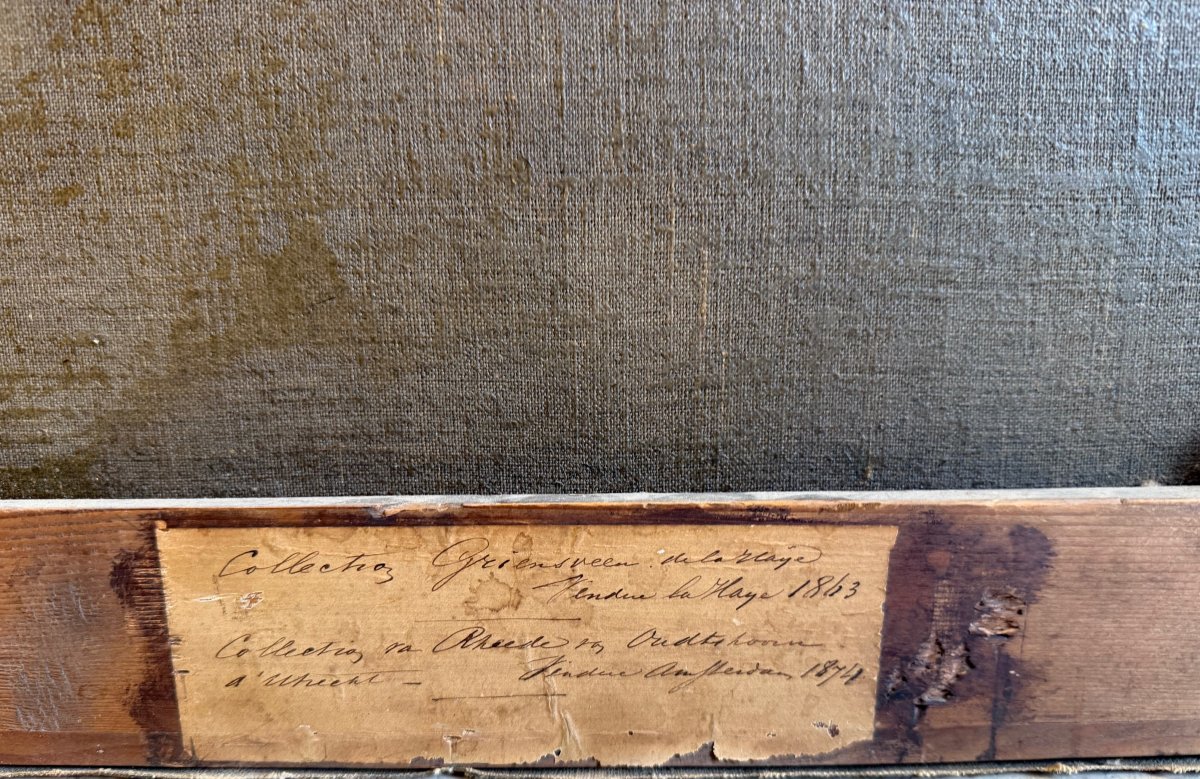 Collection Griensveen. de la Haÿe
Vendue la Haye 1863
Collection va Rheede va Oudtshoorn
a' Utrecht — Vendue Amsterdam 1874